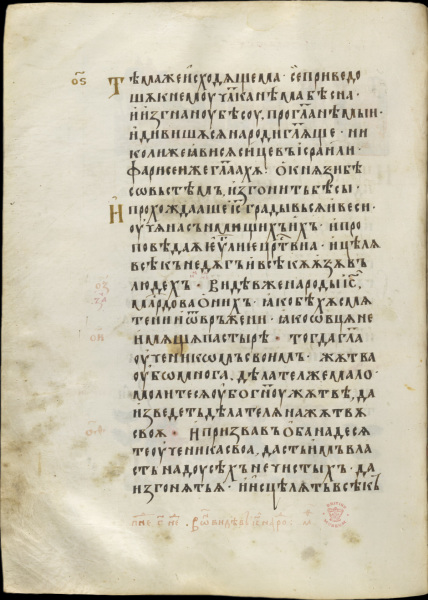 о҃ѕ
Тѣмажеисходѧщема· се приведо
шѧ к немоу ч҃лка нѣма бѣсна·
и изгнаноу бѣсоу, прогл҃а нѣмыи·
и дивишѧсѧ народи гл҃ѧще· ни
колиже ꙗвисѧ сице въ іс҃раили·
фарисеиже гл҃аахѫ· о кнѧзи бѣ
совьстѣмъ, изгонить бѣсы·
И прохождааше іс҃ грады въсѧ и веси·
оучѧ на сънмищихъ ихъ· и про
повѣдаѫ еу҃лие цр҃твиа· и цѣлѧ
всѣкъ недѫгъ и всѣкѫ ѧзѫ въ
людехъ· Видѣвже народы іс҃,
млр҃дова о нихъ· ꙗко бѣхѫ смѧ
тени и ѿвръжени· ꙗко овцѧ не
имѫщѧ пастырѣ· тогда гл҃а
оученикомъ своимъ· жѫтва
оубо многа, дѣлателже мало·
молитесѧ оубо г҃ноу жѫтвѣ, да
изведеть дѣлателѧ на жѫтвѫ
своѫ· И призвавъ обанадесѧ
те оученика своа, дасть имъ вла
сть на доусѣхъ нечистыхъ· да
изгонѧть ѧ· и исцѣлѧть всѣкъ